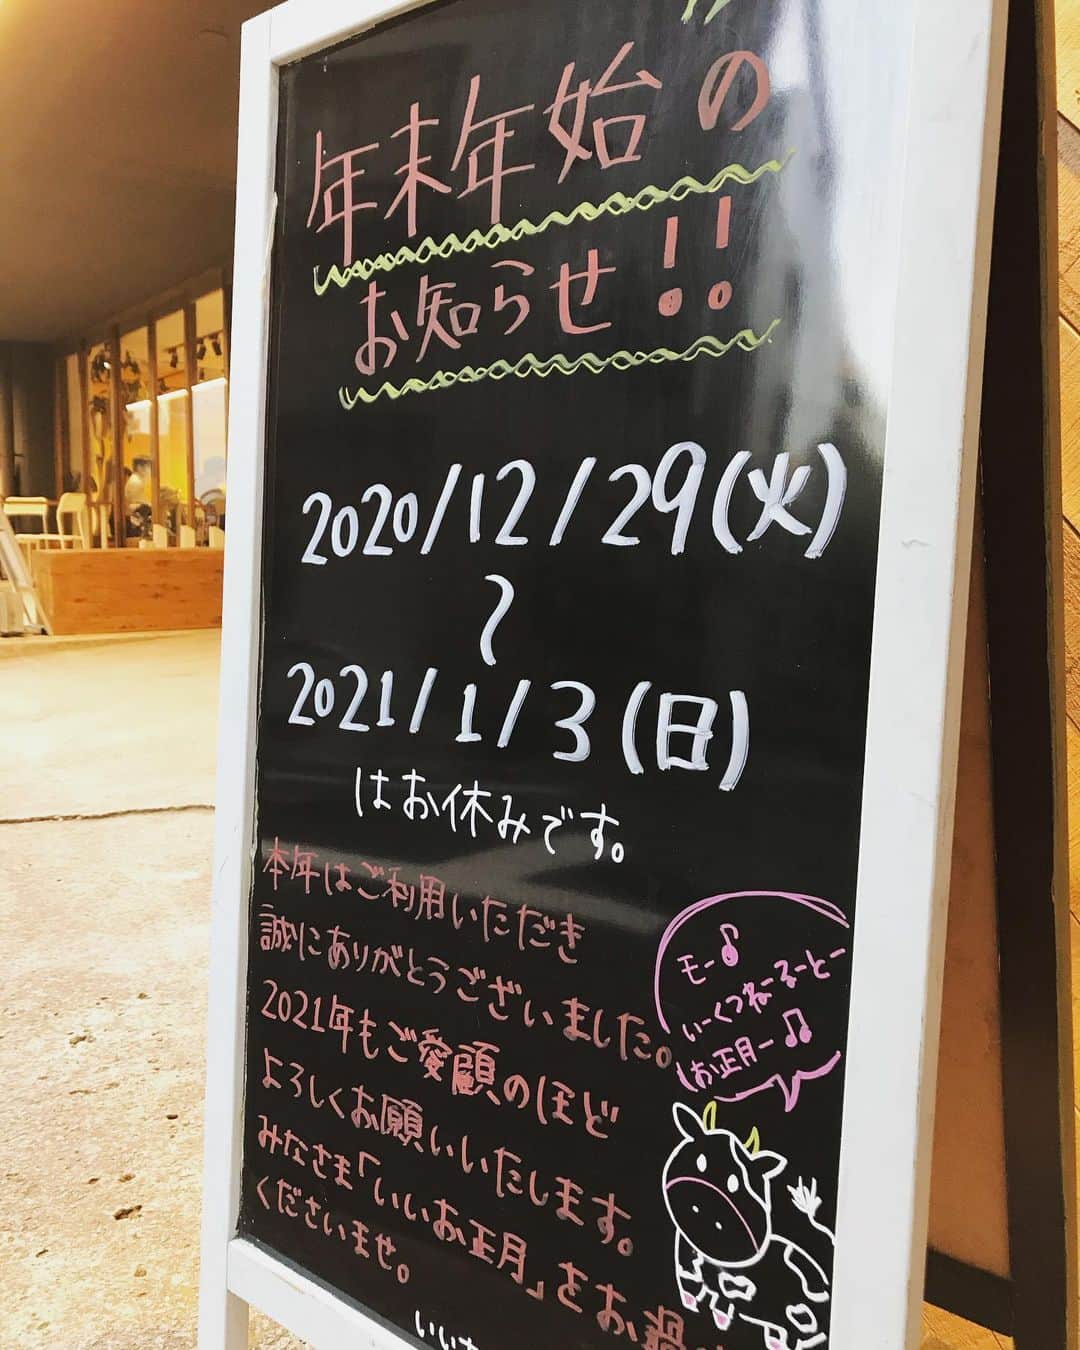 年末年始の
お知らせ!!
2020/12/29(火)
〜
2021/1/3(日)
はお休みです。
本年はご利用いただき
誠にありがとうございました。
2021年もご愛顧のほど
よろしくお願いいたします。
みなさま「いいお正月」をお過
くださいませ。
モー♪
いーくつねーるーとー
お正月ー♫